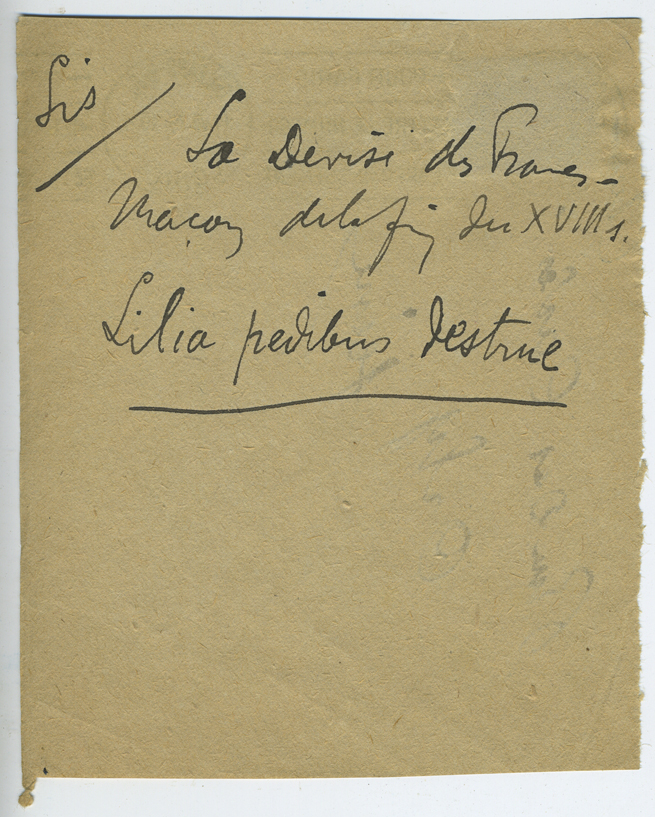 Lis /
La Devise des Francs-
Maçons de la fin du XVIII s.
Lilia pedibus destrue